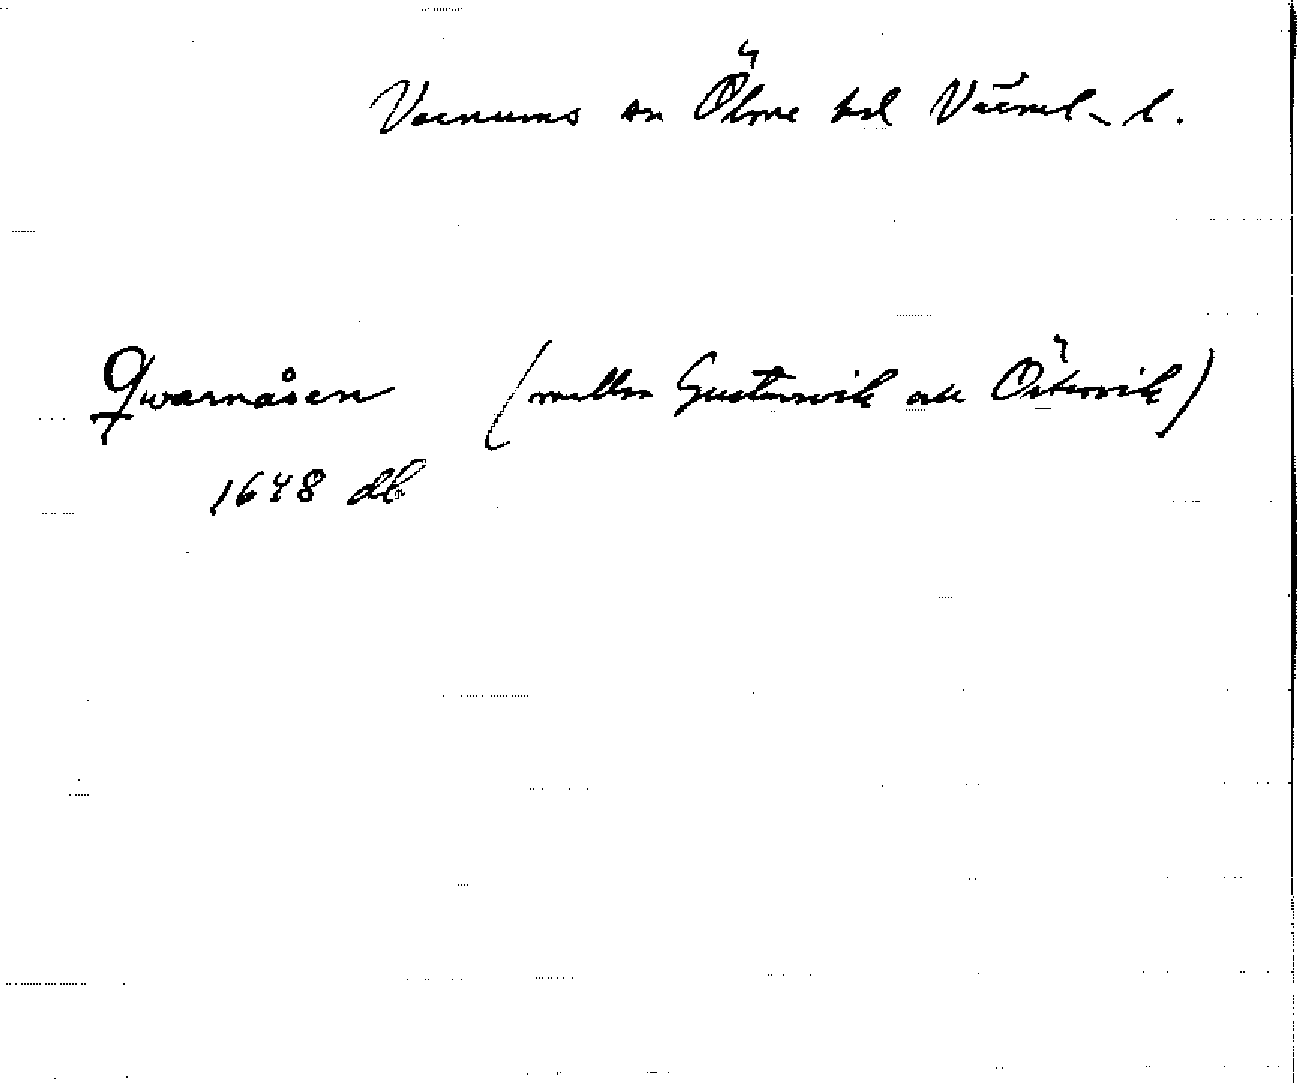 Varnums sn Ölme hd Värml. l.
Qwarnåsen (mellan Gustavsvik och Östervik)
1648 db